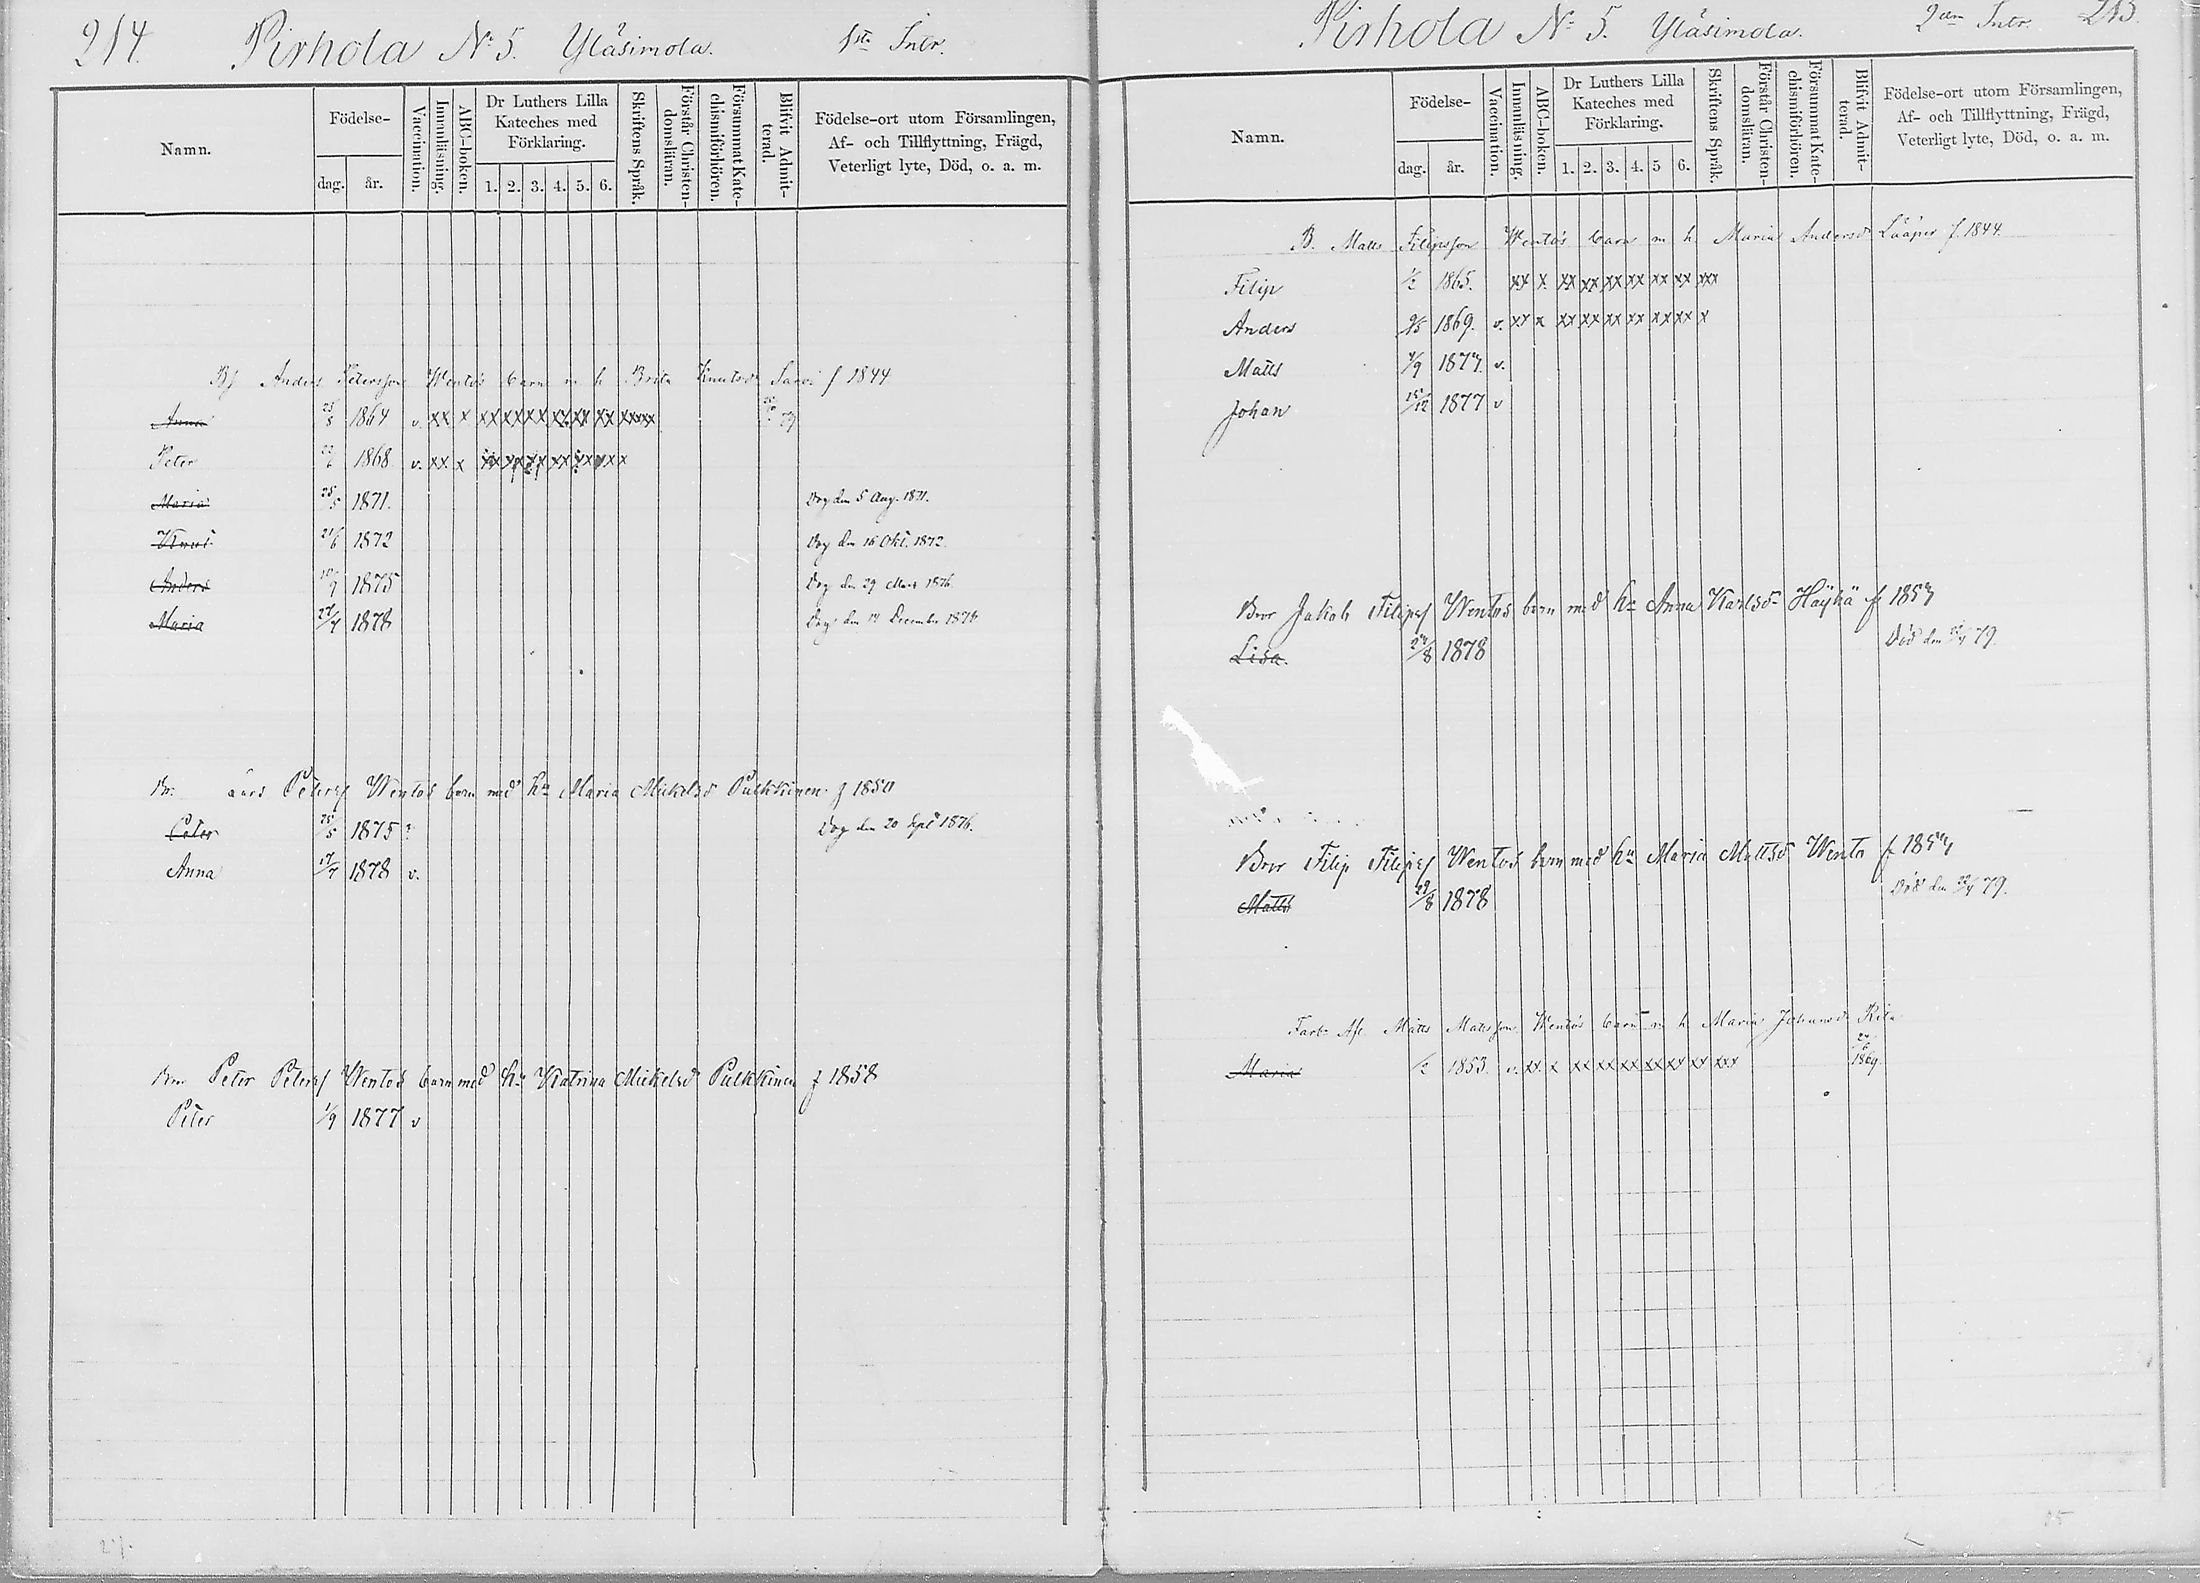 214. Pirhola No 5. Yläsimola. 1sta Intr.
Namn.
Födelse-
dag. år.
Vaccination.
Innanläsning.
ABC-boken.
Dr Luthers Lilla
Kateches med
Förklaring.
1. 2. 3. 4. 5. 6.
Skriftens Språk.
Förstår Christen-
domsläran.
Försummat Kate-
chismiförhören.
Blifvit Admit-
terad.
Födelse-ort utom Församlingen,
Af- och Tillflyttning, Frägd,
Veterligt lyte, Död, o. a. m.
Anders Petersson Wentos barn m h Brita Knutsd f 1844
Anna 25/8 1864 v. xx x xx xx xx xx xx xx xxxxx 79
Peter 1868 v. xx x
Maria 25/5 1871. Dog den 5 Aug. 1871.
Knut 21/6 1872 Dog den 16 Okt. 1872.
Anders 10/9 1875 Dog den 29 Mars 1876
Maria 27/4 1878 Dog den 14 December 1878
Br. Lars Petersf Wentos barn med hu Maria Mickelsd Pulkkinen f 1850
Peter 25/5 1875 Dog den 20 Sept 1876.
Anna 17/7 1878 v.
Bror Peter Petersf Wentos barn med hu Katrina Mickelsd Pulkkinen f 1858
Peter 1/9 1877 v
Pirhola No 5. Yläsimola. 2dra Intr. 215.
Namn.
Födelse-
dag. år.
Vaccination.
Innanläsning.
ABC-boken.
Dr Luthers Lilla
Kateches med
Förklaring.
1. 2. 3. 4. 5 6.
Skriftens Språk.
Förstår Christen-
domsläran.
Försummat Kate-
chismiförhören.
Blifvit Admit-
terad.
Födelse-ort utom Församlingen,
Af- och Tillflyttning, Frägd,
Veterligt lyte, Död, o. a. m.
B. Matts Filipsson Wentos barn m h Maria Andersd Lääperi f. 1844.
Filip 1/2 1865. xx x xx xx xx xx xx xx xxx
Anders 9/5 1869. v. xx x xx xx xx xx xx xx x
Matts 1874. v.
Johan 15/12 1877 v
Bror Jakob Filipsf Wentos barn med hu Anna Karlsd Häyhä f 1857
Lisa. 1878 Död den 79.
Bror Filip Filipsf Wentos barn med hu Maria Mattsd Wento f 1857
Matts 29/8 1878 Död den 79.
Farb: Matts Matsson Wentos barn m h Maria Johansd
Maria 1/2 1853. v. xx x xx xx xx xx xx xx xxx 1869.